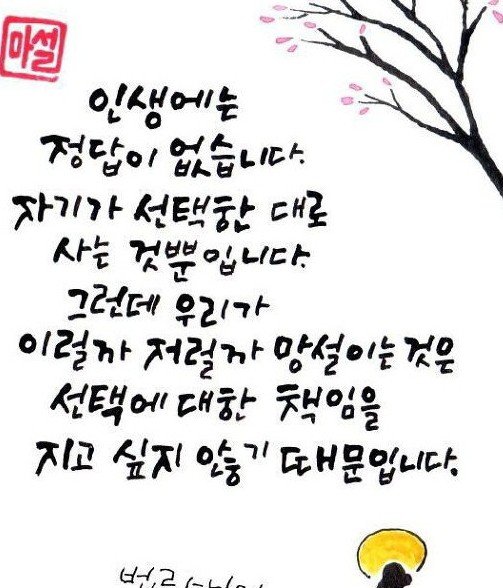 마설
인생에는
정답이 없습니다.
자기가 선택한 대로
사는 것뿐입니다.
그런데 우리가
이럴까 저럴까 망설이는 것은
선택에 대한 책임을
지고 싶지 않기 때문입니다.